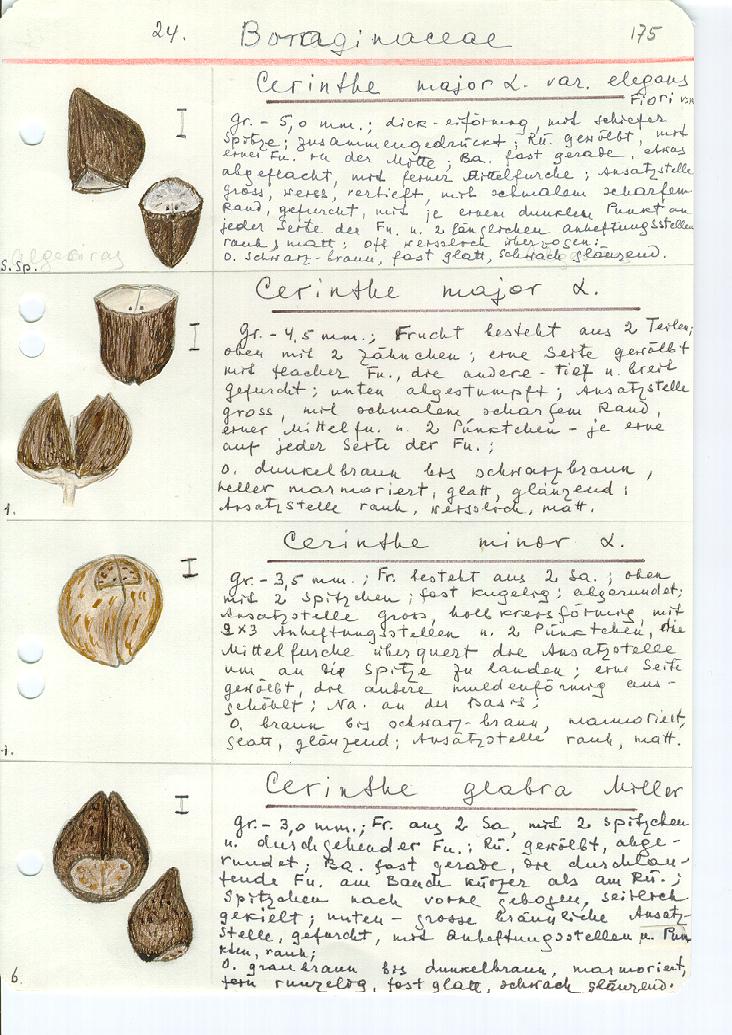 24. Boraginaceae 175
Cerinthe major L. var. elegans
Fiori
gr. - 5,0 mm.; dick-eiförmig, mit schiefer
Spitze; zusammengedrückt; Rü. gewölbt, mit
einer Fu. in der Mitte; Ba. fast gerade, etwas
abgeflacht, mit feiner Mittelfurche; Ansatzstelle
gross, weiss, vertieft, mit schmalem scharfem
Rand, gefurcht, mit je einem dunklem Punkt an
jeder Seite der Fu. u. 2 länglichen anheftungsstellen
rauh, matt; oft weisslich überzogen;
O. schwarz-braun, fast glatt, schwach glänzend.
Algeciras
S.Sp.
Cerinthe major L.
gr. - 4,5 mm.; Frucht besteht aus 2 Teilen;
oben mit 2 Zähnchen; eine Seite gewölbt
mit flacher Fu., die andere - tief u. breit
gefurcht; unten abgestumpft; Ansatzstelle
gross, mit schmalem scharfem Rand,
einer Mittelfu. u. 2 Pünktchen - je eine
auf jeder Seite der Fu.;
O. dunkelbraun bis schwarzbraun,
heller marmoriert, glatt, glänzend;
Ansatzstelle rauh, weisslich, matt.
1.
Cerinthe minor L.
gr. - 3,5 mm.; Fr. besteht aus 2 Sa.; oben
mit 2 Spitzchen; fast kugelig; abgerundet;
Ansatzstelle gross, halbkreisförmig, mit
2×3 Anheftungsstellen u. 2 Pünktchen, die
Mittelfurche überquert die Ansatzstelle
um an die Spitze zu landen; eine Seite
gewölbt, die andere muldenförmig aus-
gehöhlt; Na. an der Basis;
O. braun bis schwarz-braun, marmoriert,
glatt, glänzend; Ansatzstelle rauh, matt.
1.
Cerinthe glabra Miller
gr. - 3,0 mm.; Fr. aus 2 Sa, mit 2 spitzchen
u. durchgehender Fu.; Rü. gewölbt, abge-
rundet; Ba. fast gerade, die durchlau-
fende Fu. am Bauch kürzer als am Rü.;
Spitzchen nach vorne gebogen, seitlich
gekielt; unten - grosse bräunliche Ansatz-
stelle, gefurcht, mit Anheftungsstellen u. Pun
kten, rauh;
O. graubraun bis dunkelbraun, marmoriert,
fein runzelig, fast glatt, schwach glänzend.
6.